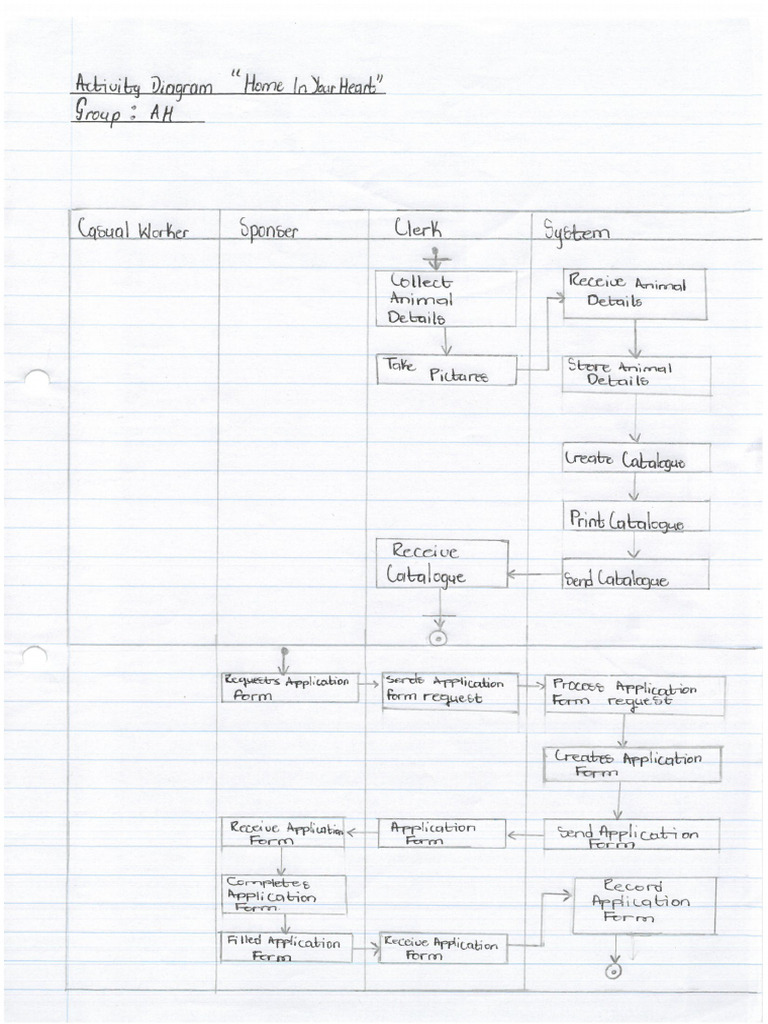 Activity Diagram "Home In Your Heart"
Group : AH
Casual Worker Sponser Clerk System
Collect
Animal
Details
Receive Animal
Details
Take Pictures
Store Animal
Details
Create Catalogue
Print Catalogue
Receive
Catalogue
Send Catalogue
Requests Application
Form
Sends Application
form request
Process Application
Form request
Creates Application
Form
Receive Application
Form
Application
Form
Send Application
Form
Completes
Application
Form
Record
Application
Form
Filled Application
Form
Receive Application
Form